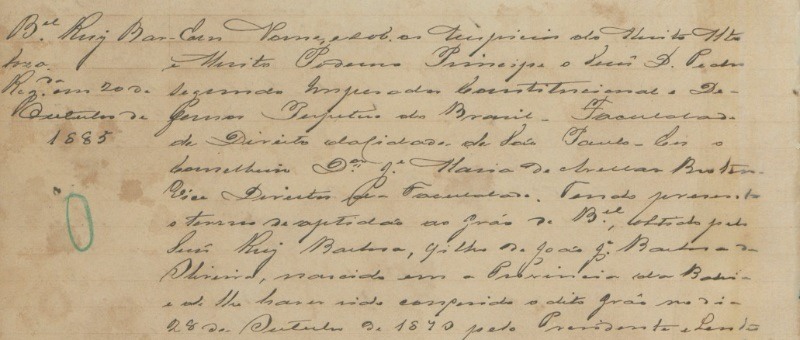 B.el Ruy Bar-
boza.
Reg.da em 20 de
Outubro de
1885
Em Nome e sob os Auspicios do Muito Alto
e Muito Poderoso Principe o Senr. D. Pedro
segundo Imperador Constitucional e De-
fensor Perpetuo do Brasil - Faculdade
de Direito da Cidade de São Paulo - Eu o
Conselheiro D.or J.e Maria de Avellar Broter-
Vice Director da Faculdade. Tendo presente
o termo de aptidão ao gráo de B.el, obtido pelo
Senr. Ruy Barbosa, filho de João J.e Barbosa de
Oliveira, nascido em a Provincia da Bahi-
e de lhe haver sido conferido o dito gráo no di-
28 de Outubro de 1870 pelo Presidente e Lente